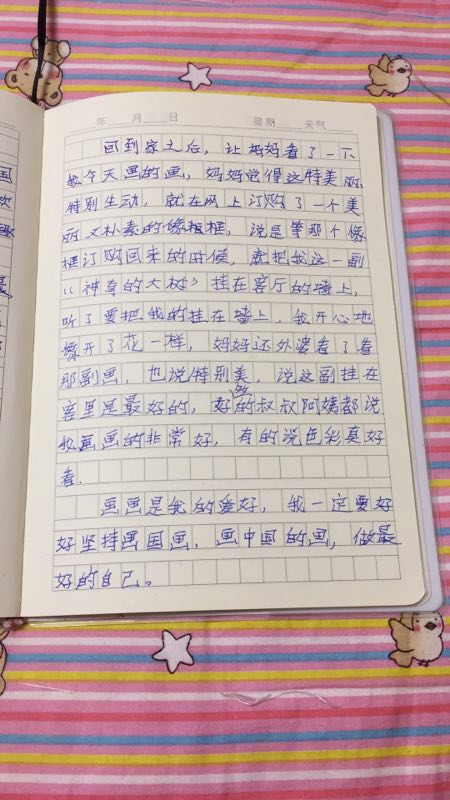 年 月 日 星期 天气
回到家之后，让妈妈看了一下
我今天画的画，妈妈觉得这特美丽，
特别生动，就在网上订购了一个美
丽又朴素的像框框，说是等那个像
框订购回来的时候，就把我这一副
《神奇的大树》挂在客厅的墙上，
听了要把我的挂在墙上，我开心地
像开了花一样，妈妈还外婆看了看
那副画，也说特别美，说这副挂在
客里是最好的，好多的叔叔阿姨都说
我画画的非常好，有的说色彩真好
看.
画画是我的爱好，我一定要好
好坚持画国画，画中国的画，做最
好的自己。